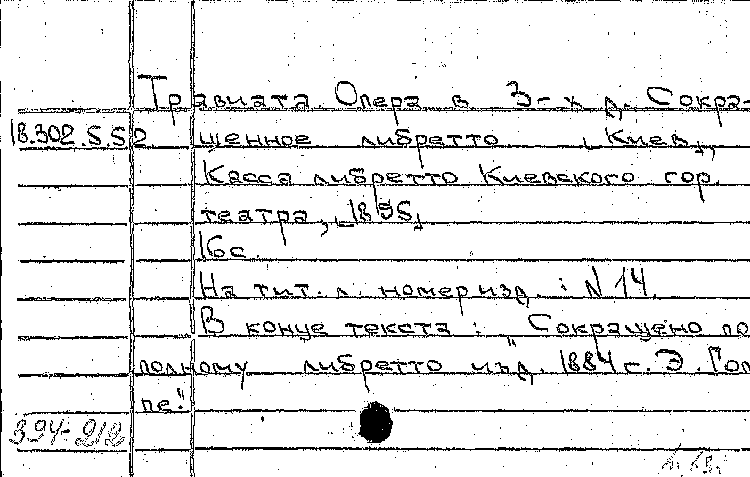 Травиата. Опера в 3-х д. Сокра-
18.302.5.52 щенное либретто [Киев],
Касса либретто Киевского гор.
театра, [1895]
16 с.
На тит. л. номер изд.: N 14.
В конце текста: "Сокращено по
полному либретто изд. 1884 г. Э. Гоп
пе".
394-212